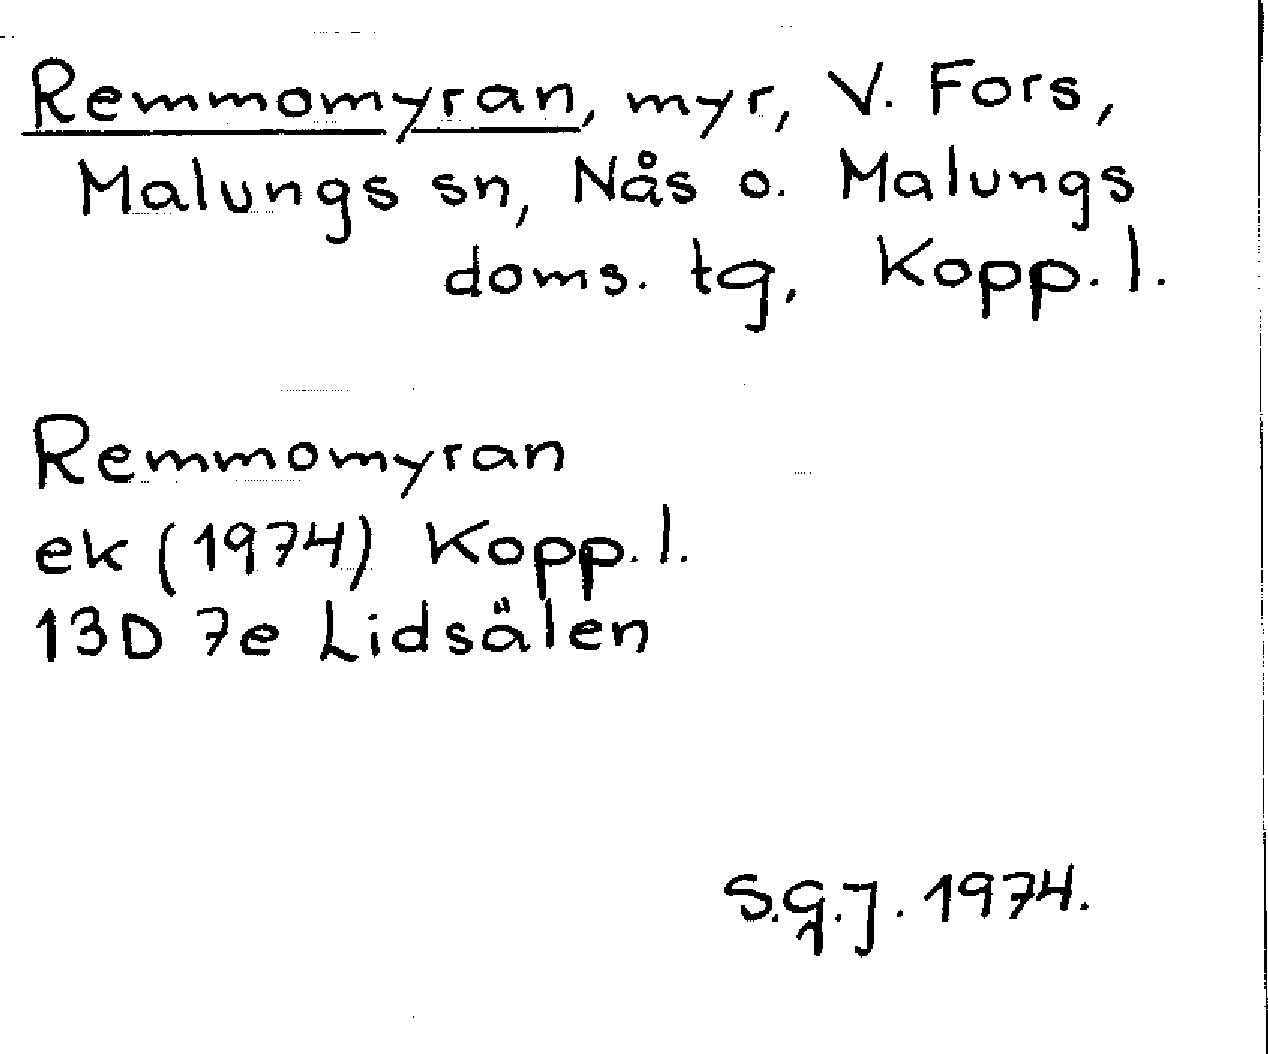 Remmomyran, myr, V. Fors,
Malungs sn, Nås o. Malungs
doms. tg, Kopp. l.
Remmomyran
ek (1974) Kopp. l.
13D 7e Lidsälen
S.G.J. 1974.